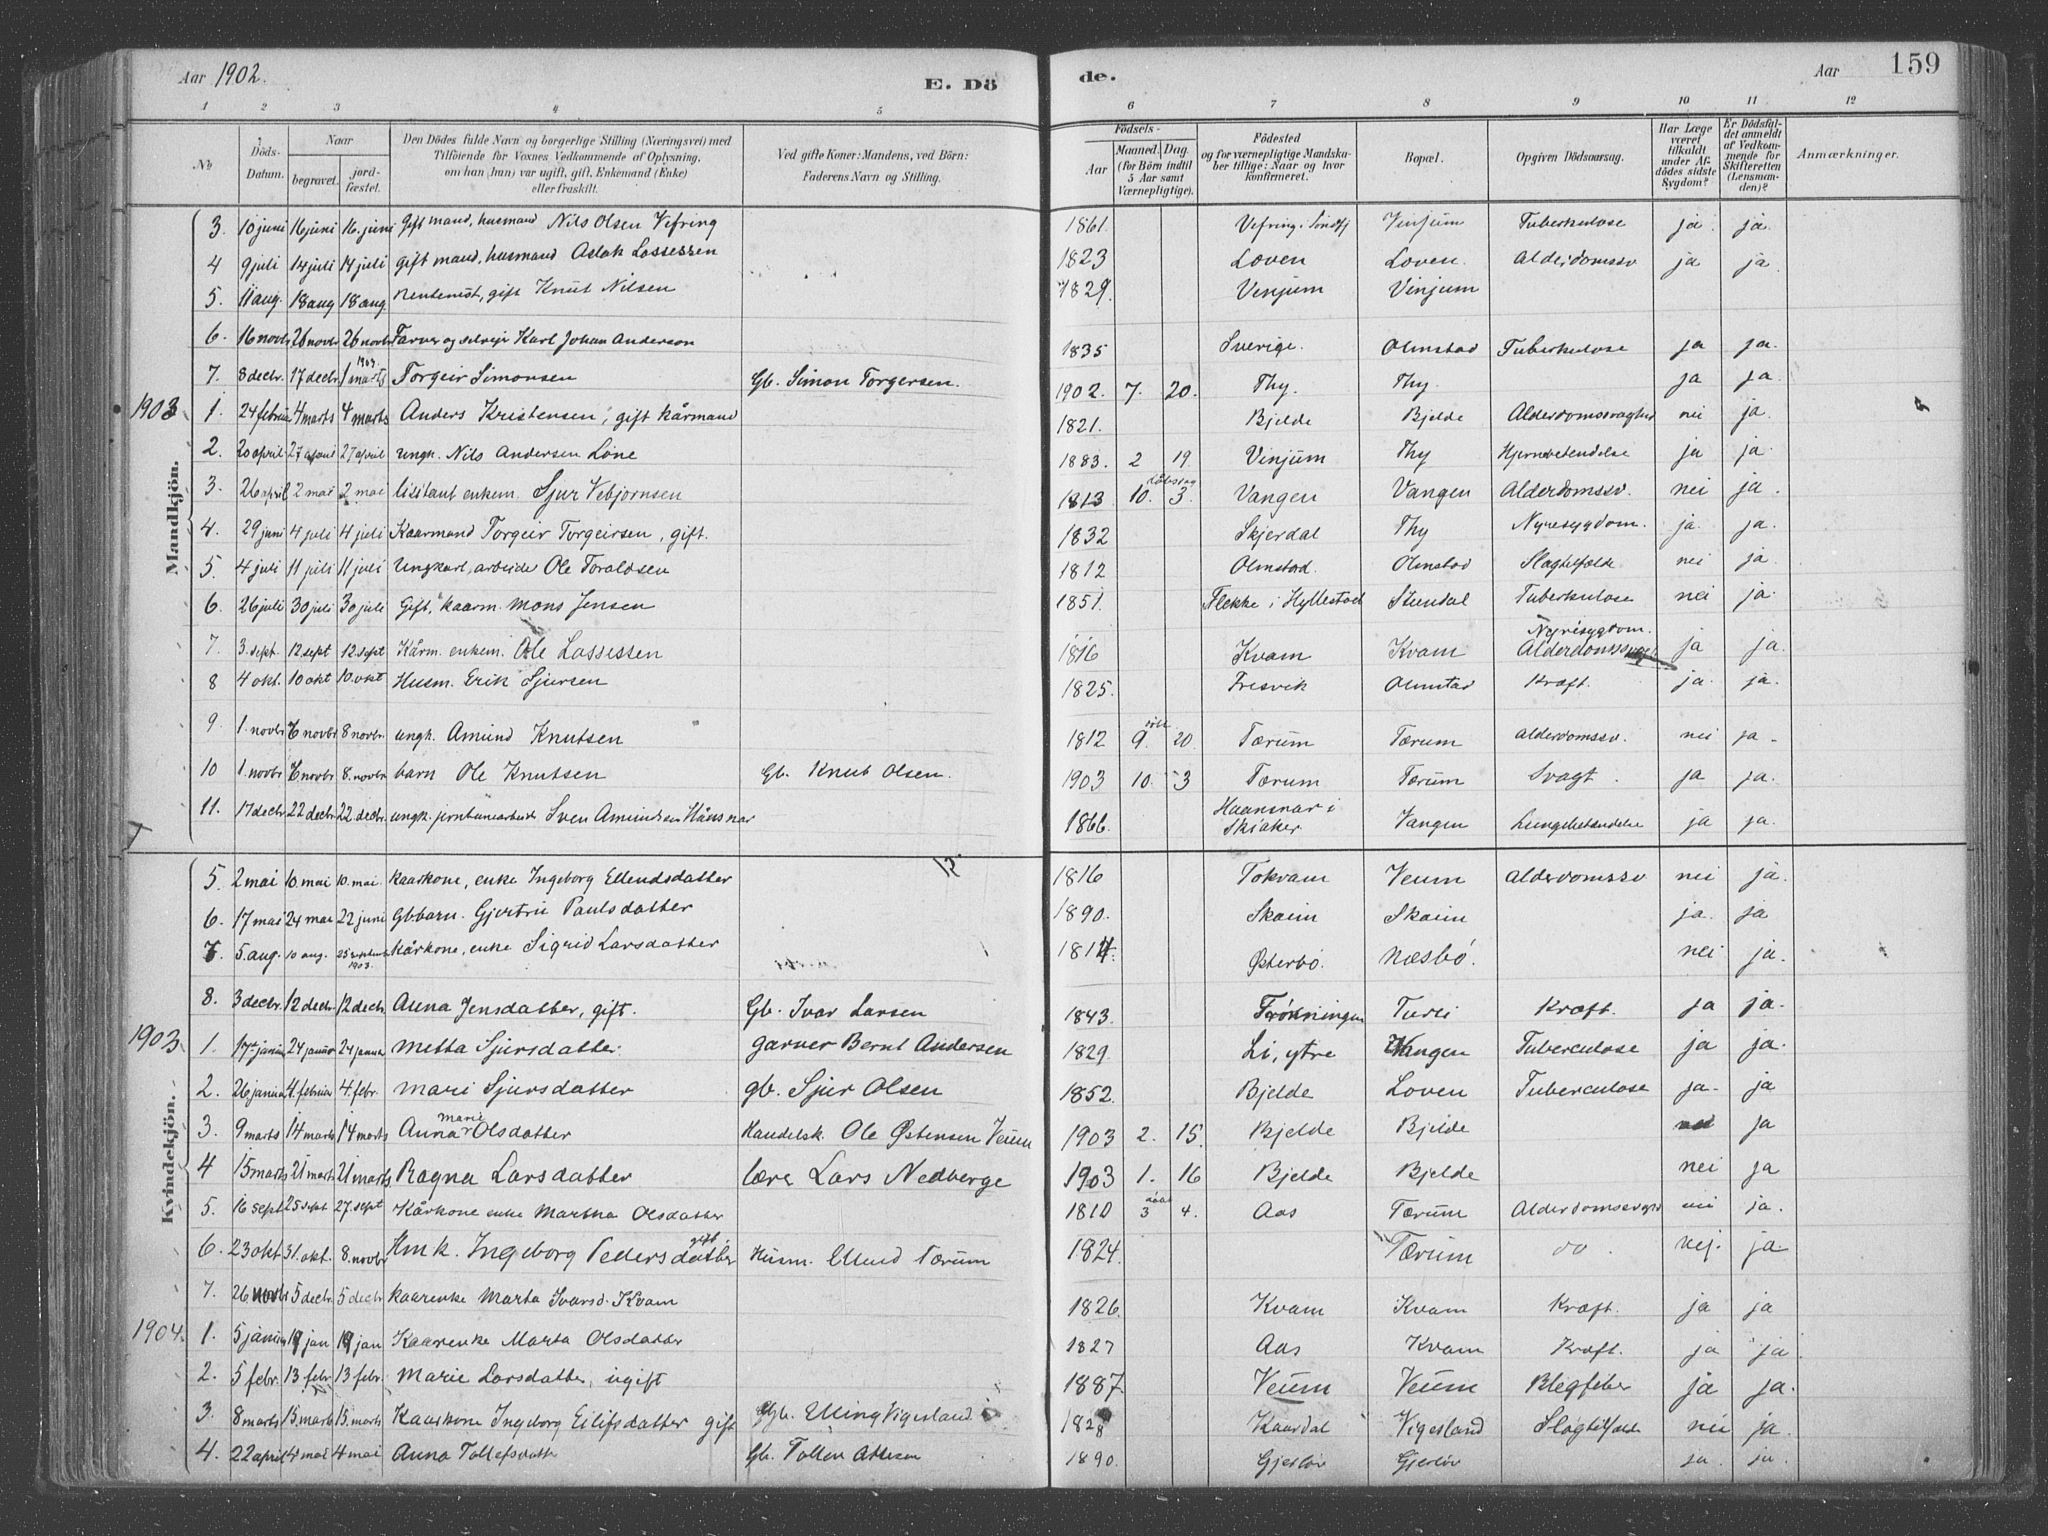 Aar 1902. E. Dö de. Aar 159
1 2 3 4 5 6 7 8 9 10 11 12
No Döds-Datum. Naar begravet. jordfæstet. Den Dödes fulde Navn og borgerlige Stilling (Næringsvei) med Tilföiende for Voxnes Vedkommende af Oplysning, om han (hun) var ugift, gift, Enkemand (Enke) eller fraskilt. Ved gifte Koner: Mandens, ved Börn: Faderens Navn og Stilling. Födsels- Aar Maaned. Dag. (for Börn indtil 5 Aar samt Værnepligtige). Födested og for værnepligtige Mandskaber tillige: Naar og hvor konfirmeret. Bopæl. Opgiven Dödsaarsag. Har Læge været tilkaldt under Afdödes sidste Sygdom? Er Dödsfaldet anmeldt af Vedkommende for Skifteretten (Lensmanden)? Anmærkninger.
Mandkjön.
3. 10 juni 16 juni 16. juni Gift mand, husmand Nils Olsen Vefring 1861. Vefring i Söndfj Vinjum Tuberkulose ja. ja.
4 9 juli 14 juli 14 juli gift mand, husmand Aslak Lassessen 1823 Loven Loven. Alderdomssv ja ja.
5. 11 aug. 18 aug 18 aug. rentenist, gift Knut Nilsen 1829. Vinjum Vinjum
6. 16 novbr 26 novbr 26 novbr Farver og selveier Karl Johan Anderson 1835 Sverige. Olmstad Tuberkulose ja ja.
7. 8 decbr. 17 decbr 1 marts 1903 Torgeir Simonsen Gb. Simon Torgersen. 1902. 7. 20. Thy. Thy. ja ja.
1903 1. 24 februar 4 marts 4 marts Anders Kristensen, gift kårmand 1821. Bjelde Bjelde Alderdomssvaghed nei ja.
2. 20 april 27 april 27 april Ungk. Nils Andersen Lone 1883. 2 19. Vinjum Thy Hjernebetendelse ja ja.
3. 26 april 2 mai 2 mai enkem. Sjur Vebjørnsen 1813 10. 3. Vangen Vangen Alderdomssv. nei ja.
4. 29 juni 4 juli 4 juli Kaarmand Torgeir Torgeirsen, gift. 1832 Skjerdal Thy Nyresygdom. ja. ja.
5. 4 juli 11 juli 11 juli Ungkarl, arbeider Ole Toraldsen 1812 Olmstad. Olmstad Slagtilfælde nei ja.
6. 26 juli 30 juli 30 juli Gift, kaarm. Mons Jensen 1851. Flekke i Hyllestad Stundal Tuberkulose nei ja.
7. 3. sept. 12 sept 12 sept Kårm. enkem. Ole Lassessen 1816 Kvam Kvam Nyresygdom. Alderdomssvag ja ja.
8 4 okt. 10 okt 10. okt Husm. Erik Sjursen 1825. Fresvik Olmstad Kræft. ja. ja.
9. 1. novbr 6 novbr 8 novbr. ungk. Amund Knutsen 1812 9. 20. Tærum Tærum Alderdomssv. nei ja.
10 1. novbr 6 novbr 8. novbr barn Ole Knutsen Gb. Knut Olsen. 1903 10. 3 Tærum Tærum Svagt. ja ja.
11. 17 decbr 22 decbr. 22. decbr. ungk. jernbanearbeider Sven Amundsen Hånsnar 1866. Haansnar i Skiaker Vangen Lungebetændelse ja ja.
Kvindekjön.
5. 2 mai 10. mai 10. mai kaarkone, enke Ingeborg Ellendsdatter 12. 1816 Tokvam Veum Alderdomssv nei ja.
6. 17 mai 24 mai 22 juni Gbbarn. Gjertrü Paulsdatter 1890. Skaim Skaim ja. ja
7. 5. aug. 10 aug. 25 september 1903. Kårkone, enke Sigrid Larsdatter 1814. Østerbø. Næsbø. nei ja.
8. 3 decbr. 12 decbr. 12 decbr Anna Jensdatter, gift. Gb. Ivar Larsen 1843. Frønningen Turli Kræft. ja ja.
1903 1. 17 januar 24 januar 24 januar Metta Sjursdatter. garver Bernt Andersen 1829. Li, ytre Vangen Tuberculose ja ja.
2. 26 januar 4. februar 4. febr. Mari Sjursdatter gb. Sjur Olsen 1852. Bjelde Loven Tuberculose ja. ja
3. 9 marts 14 marts 14 marts Anna Marie Olsdatter Handelsk. Ole Østensen Veum 1903 2. 15. Bjelde Bjelde nei ja
4 15 marts 21 marts 21 marts Ragna Larsdatter lærer Lars Nedberge 1903 1. 16 Bjelde Bjelde nei ja
5. 16 sept 25 sept 27. sept Kårkone enke Martha Olsdatter 1810 3 4. Aas Tærum Alderdomssvagh nei ja.
6. 23 okt 31. okt. 8. novbr Hmk. Ingeborg Pedersdatter gift. Husm. Ellend Tærum 1824. Tærum do. nej. ja
7. 26 novbr 5 decbr. 5 decbr Kaarenke Marta Ivarsd. Kvam 1826. Kvam Kvam Kræft. ja ja
1904. 1. 5 januar 19 jan 19 jan Kaarenke Marta Olsdatter 1827 Aas Kvam Kræft. ja ja.
2. 5 febr. 13 febr 13 febr. Marie Larsdatter, ugift 1887. Veum Veum Blegfeber ja ja.
3. 8 marts 15. marts 15. marts Kaarkone Ingeborg Eilifsdatter gift Gb. Elling Vigesland. 1828 Kaardal Vigesland Slagtilfælde nei ja.
4. 22 april 4 mai 4 mai Anna Tollefsdatter Gb. Tollev 1890. Gjerløv Gjerløv ja. ja.